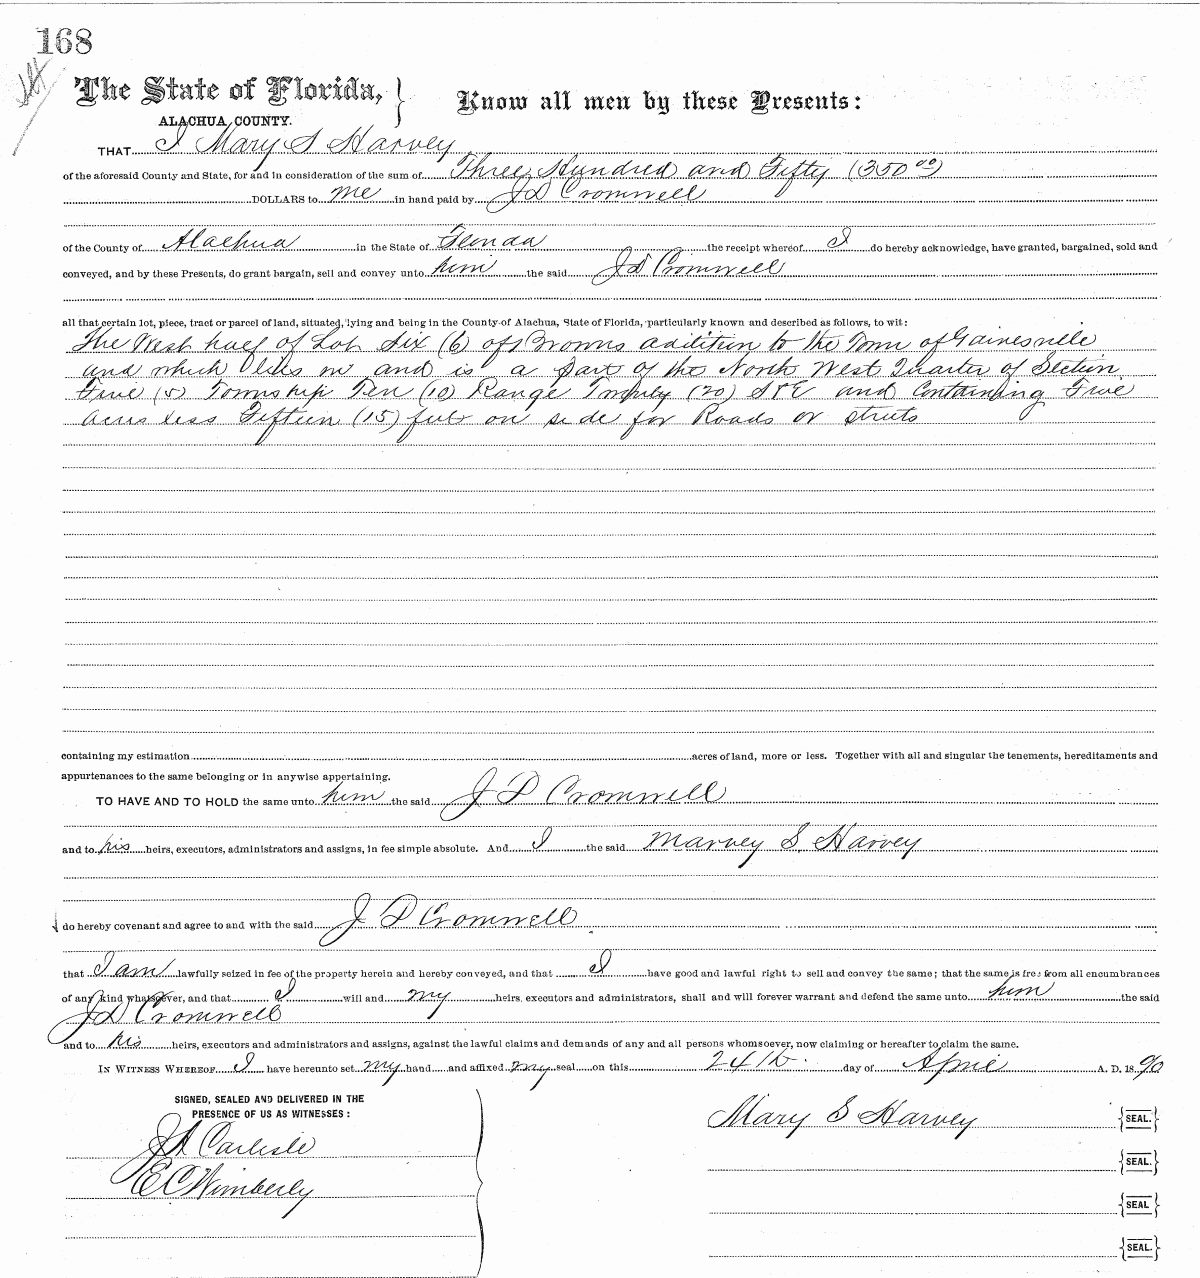 168
The State of Florida, } Know all men by these Presents:
ALACHUA COUNTY.
THAT I Mary S Harvey
of the aforesaid County and State, for and in consideration of the sum of Three Hundred and Fifty (350 00)
DOLLARS to me in hand paid by J D Cromwell
of the County of Alachua in the State of Florida the receipt whereof I do hereby acknowledge, have granted, bargained, sold and
conveyed, and by these Presents, do grant bargain, sell and convey unto him the said J D Cromwell
all that certain lot, piece, tract or parcel of land, situated, lying and being in the County of Alachua, State of Florida, particularly known and described as follows, to wit:
The West half of Lot Six (6) of Browns addition to the Town of Gainesville
and which lies in and is a part of the North West Quarter of Section
Five (5) Township Ten (10) Range Twenty (20) S & E and Containing Five
acres less Fifteen (15) feet on side for Roads or streets
containing my estimation acres of land, more or less. Together with all and singular the tenements, hereditaments and
appurtenances to the same belonging or in anywise appertaining.
TO HAVE AND TO HOLD the same unto him the said J D Cromwell
and to his heirs, executors, administrators and assigns, in fee simple absolute. And I the said Marvey S Harvey
do hereby covenant and agree to and with the said J D Cromwell
that I am lawfully seized in fee of the property herein and hereby conveyed, and that I have good and lawful right to sell and convey the same; that the same is free from all encumbrances
of any kind whatsoever, and that I will and my heirs, executors and administrators, shall and will forever warrant and defend the same unto him the said
J D Cromwell
and to his heirs, executors and administrators and assigns, against the lawful claims and demands of any and all persons whomsoever, now claiming or hereafter to claim the same.
IN WITNESS WHEREOF I have hereunto set my hand and affixed my seal on this 24th day of April A. D. 1890
SIGNED, SEALED AND DELIVERED IN THE
PRESENCE OF US AS WITNESSES:
Mary S Harvey {SEAL.}
J A Carlisle
{SEAL.}
E C Wimberly
{SEAL}
{SEAL.}